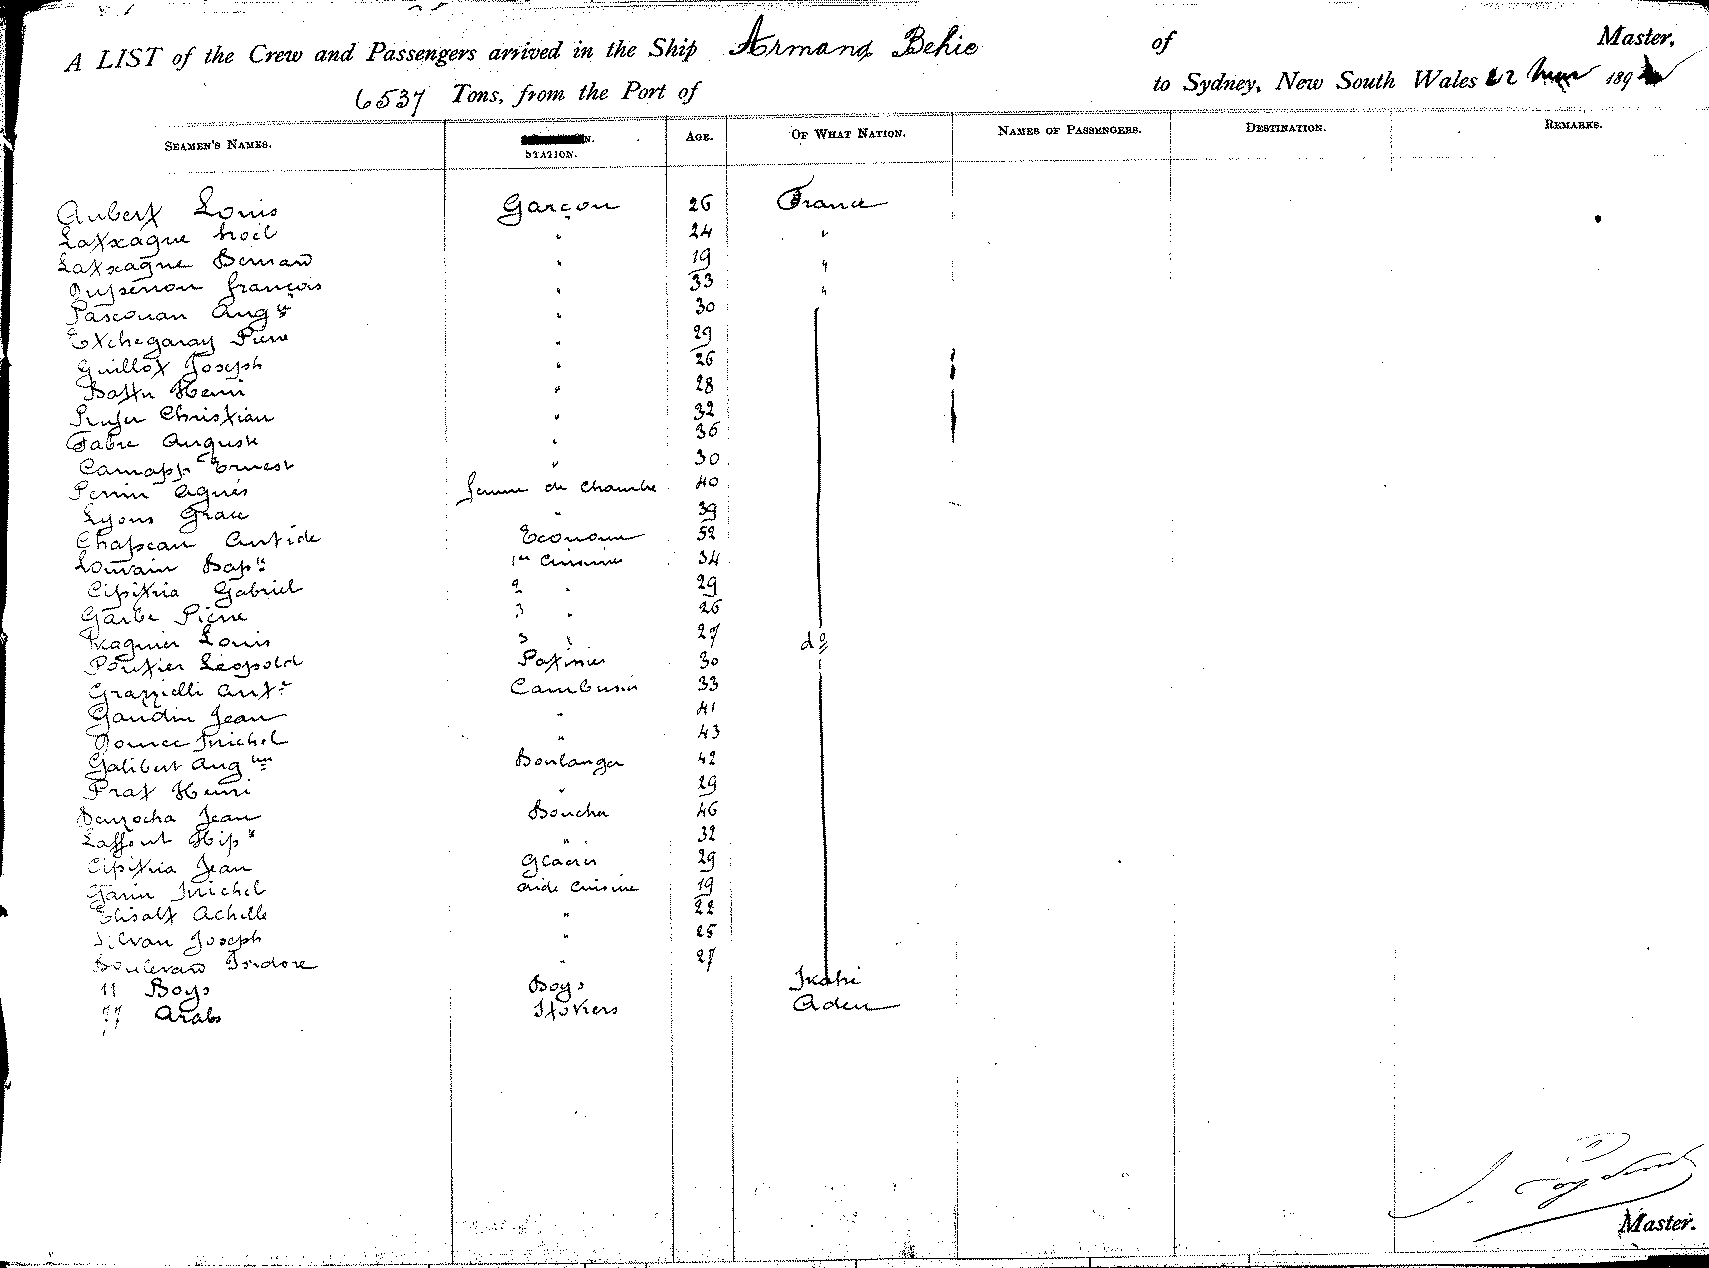 A LIST of the Crew and Passengers arrived in the Ship Armand Behic of Master,
6537 Tons, from the Port of to Sydney, New South Wales 22 189
SEAMEN'S NAMES. STATION. AGE. OF WHAT NATION. NAMES OF PASSENGERS. DESTINATION. REMARKS.
Aubert Louis Garçon 26 France
Latxague Noël " 24 "
Latxague Bernard " 19 "
François " 33 "
Pascouau Augte " 30
Etchegaray Pierre " 29
Guillot Joseph " 26
Battu Henri " 28
Christian " 32
Fabre Auguste " 36
Ernest " 30
Perrin Agnès femme de chambre 40
Lyons Grace " 39
Chapeau Antide Econome 52
Louvain Bapte 1er Cuisinier 34
Cipitria Gabriel 2 " 29
Garbe Pierre 3 " 26
Louis 3 " 27 do
Poutier Léopold Patissier 30
Grazzielli Antne Cambusier 33
Gaudin Jean " 41
Michel " 43
Galibert Augtin Boulanger 42
Prat Henri " 29
Jean Boucher 46
Laffont Hipte " 32
Cipitria Jean Glacier 29
Garin Michel aide Cuisine 19
Achille " 22
Silvan Joseph " 25
Boulevard Isidore " 27
11 Boys Boys
77 Arabs Stokers Aden
Master.